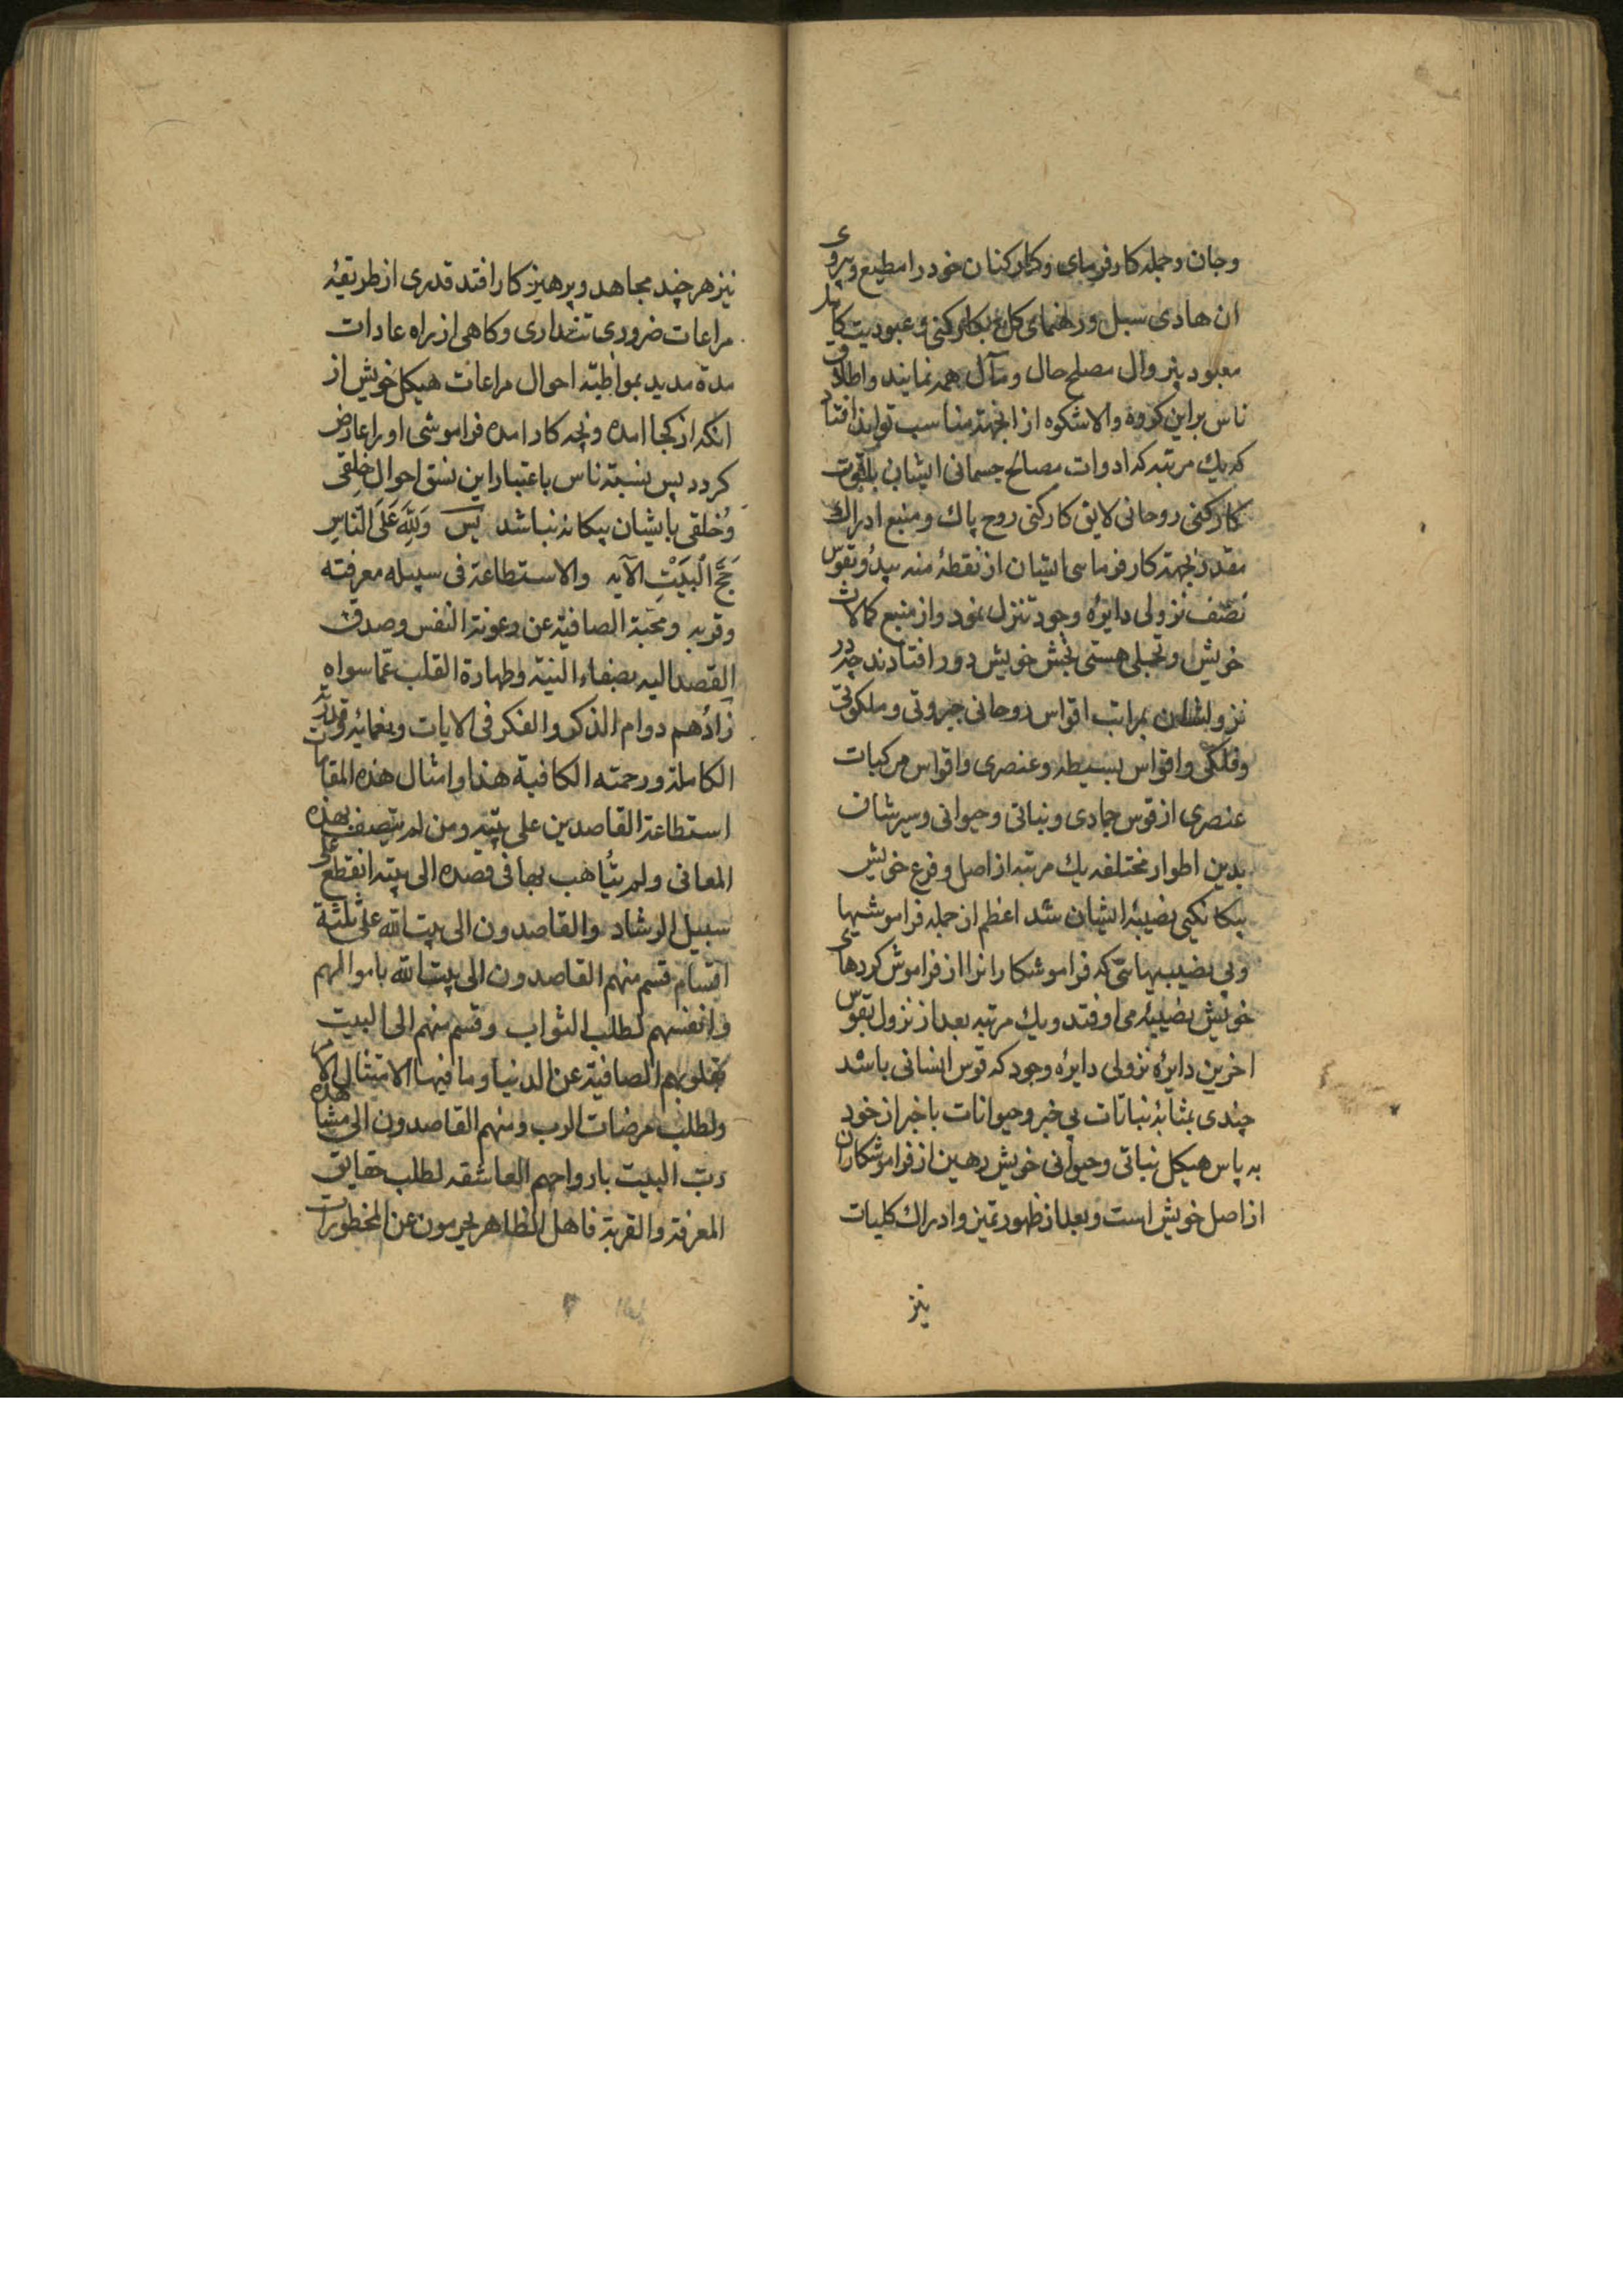 وجان وجمله کارفرمای وکارکنان خود را مطیع وپیروی
ان هادی سبیل ورهنمای کل بکارکنی وعبودیت
معبود بیزوال مصلح حال ومآل همه نمایند واطلاق
ناس براین کروه والاشکوه از انجهته مناسب تواند افتاد
که یك مرتبه که ادوات مصالح جسمانی ایشان بلقوت
کارکنی روحانی لایق کارکنی روح پاك ومنبع ادراك
بجهته کارفرماسی ایشان از نقطهٔ منه یبدؤ بقوس
نصف نزولی دایرهٔ وجود تنزل نمود واز منبع کمالات
خویش وتجلی هستی بخش خویش دور افتادند چه در
نزولشان بمراتب اقواس روحانی جبروتی وملکوتی
وفلکی واقواس بسیطه وعنصری واقواس مرکبات
عنصری از قوس جمادی ونباتی وحیوانی وسیرشان
بدین اطوار مختلفه یك مرتبه از اصل وفرع خویش
بیکانکیی نصیبهٔ ایشان شد اعظم از جمله فراموشیها
وبی نصیبیهایی که فراموشکارانرا از فراموش کردهای
خویش نصیبه می اوفتد ویك مرتبه بعد از نزول بقوس
اخرین دایرهٔ نزولی دایرهٔ وجود که قوس انسانی باشد
چندی بمثابهٔ نباتات بی خبر وحیوانات باخبر از خود
به پاس هیکل نباتی وحیوانی خویش رهین از فراموشکاران
از اصل خویش است وبعد از ظهور تمیز وادراك کلیات
نیز
نیز هر چند مجاهد وپرهیزکار افتد قدری از طریقهٔ
مراعات ضروری تنداری وکاهی از براه عادات
مدة مدید بمواظبته احوال مراعات هیکل خویش از
انکه از کجا امده وبچه کار امده فراموشی او را عارض
کردد پس بنسبته ناس باعتبار این نسق احوال خلقی
وخلقی بایشان بیکانه نباشد پس وَلِلَّهِ عَلَى النَّاسِ
حَجُّ الْبَيْتِ الآیه والاستطاعة فی سبیله معرفته
وقربه ومحبة الصافیة عن رعونة النفس وصدق
القصد الیه بصفاء النیة وطهارة القلب عما سواه
زادُهم دوام الذکر والفکر فی الایات ونعمائه وقدرته
الکاملة ورحمته الکافیة هذا وامثال هذه المقامات
استطاعة القاصدین علی بیته ومن لم یتصف بهذه
المعانی ولم یتأهب بها فی قصده الی بیته انقطع علی
سبیل الرشاد والقاصدون الی بیت الله علی ثلثة
اقسام قسم منهم القاصدون الی بیت الله باموالهم
وانفسهم لطلب الثواب وقسم منهم الی البیت
بقلوبهم الصافیة عن الدنیا وما فیها الامتثال الامر
ولطلب مرضات الرب ومنهم القاصدون الی مشاهده
رب البیت بارواحهم العاشقه لطلب حقایق
المعرفة والقربة فاهل الظاهر یحرمون عن المخطورات